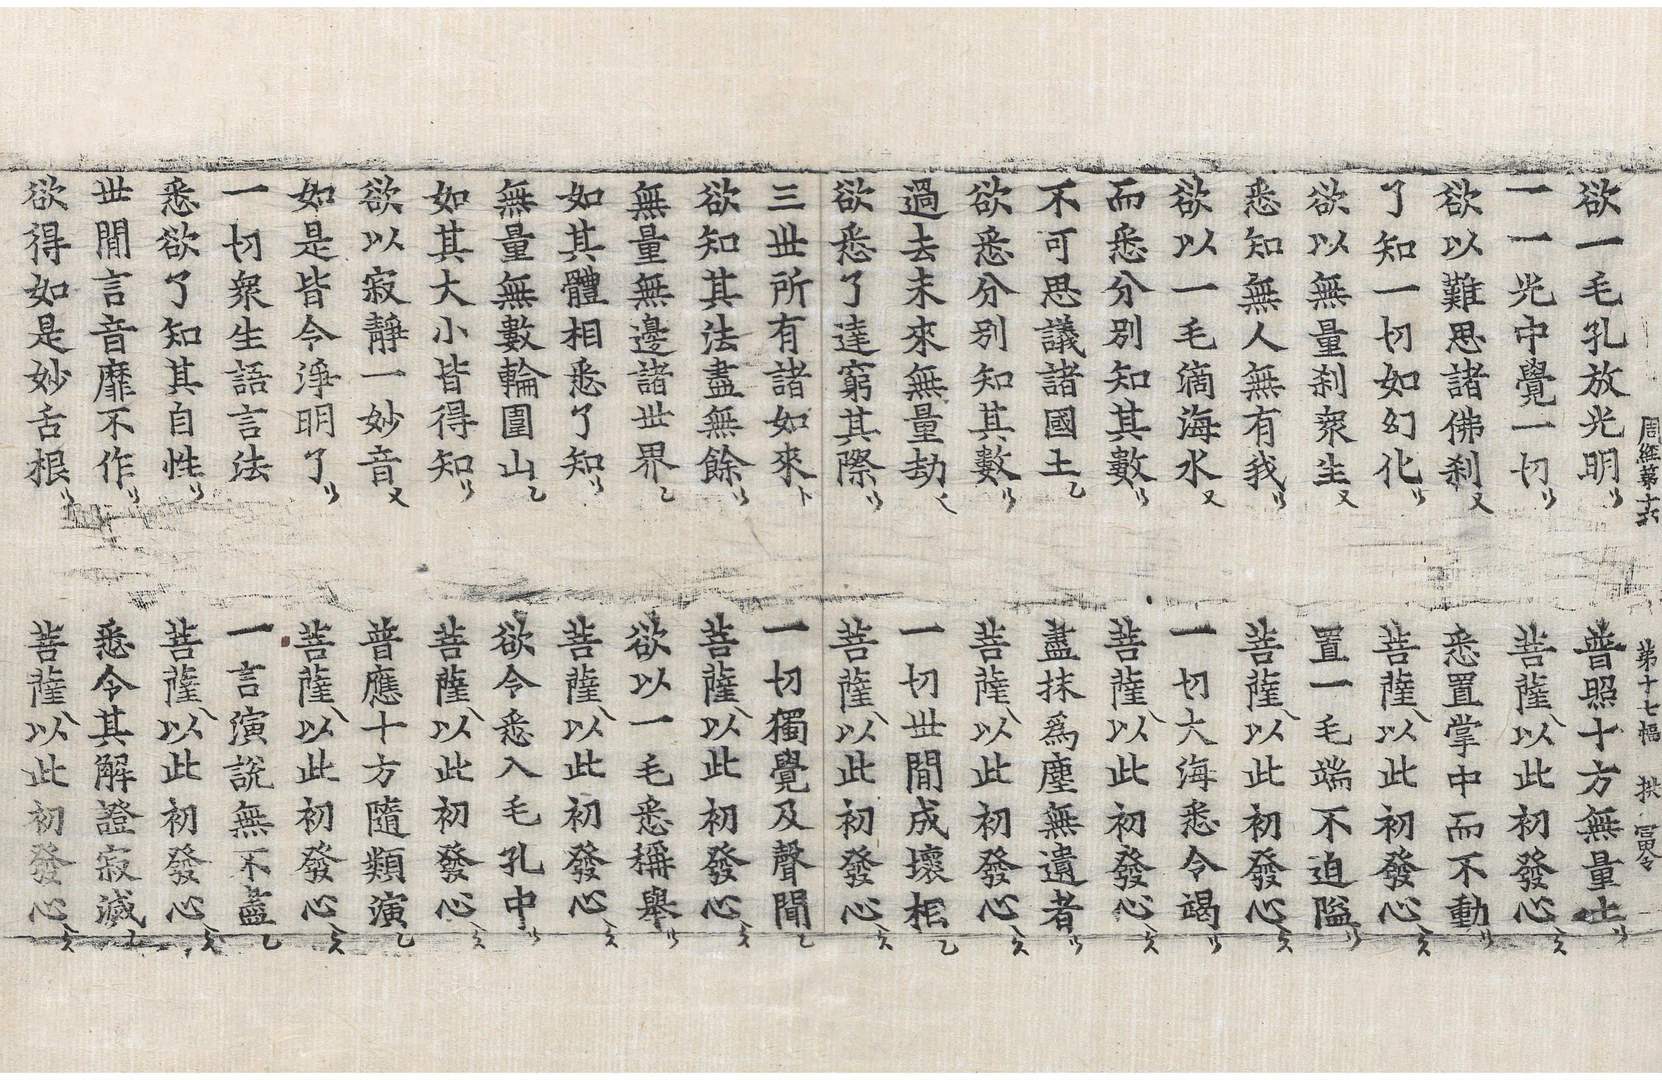 周經第十六 第十七幅 拱
欲一毛孔放光明 普照十方無量土
一一光中覺一切 菩薩以此初發心
欲以難思諸佛刹 悉置掌中而不動
了知一切如幻化 菩薩以此初發心
欲以無量刹衆生 置一毛端不迫隘
悉知無人無有我 菩薩以此初發心
欲以一毛滴海水 一切大海悉令竭
而悉分別知其數 菩薩以此初發心
不可思議諸國土 盡抹爲塵無遺者
欲悉分別知其數 菩薩以此初發心
過去未來無量劫 一切世間成壞相
欲悉了達窮其際 菩薩以此初發心
三世所有諸如來 一切獨覺及聲聞
欲知其法盡無餘 菩薩以此初發心
無量無邊諸世界 欲以一毛悉稱舉
如其體相悉了知 菩薩以此初發心
無量無數輪圍山 欲令悉入毛孔中
如其大小皆得知 菩薩以此初發心
欲以寂靜一妙音 普應十方隨類演
如是皆令淨明了 菩薩以此初發心
一切衆生語言法 一言演說無不盡
悉欲了知其自性 菩薩以此初發心
世間言音靡不作 悉令其解證寂滅
欲得如是妙舌根 菩薩以此初發心